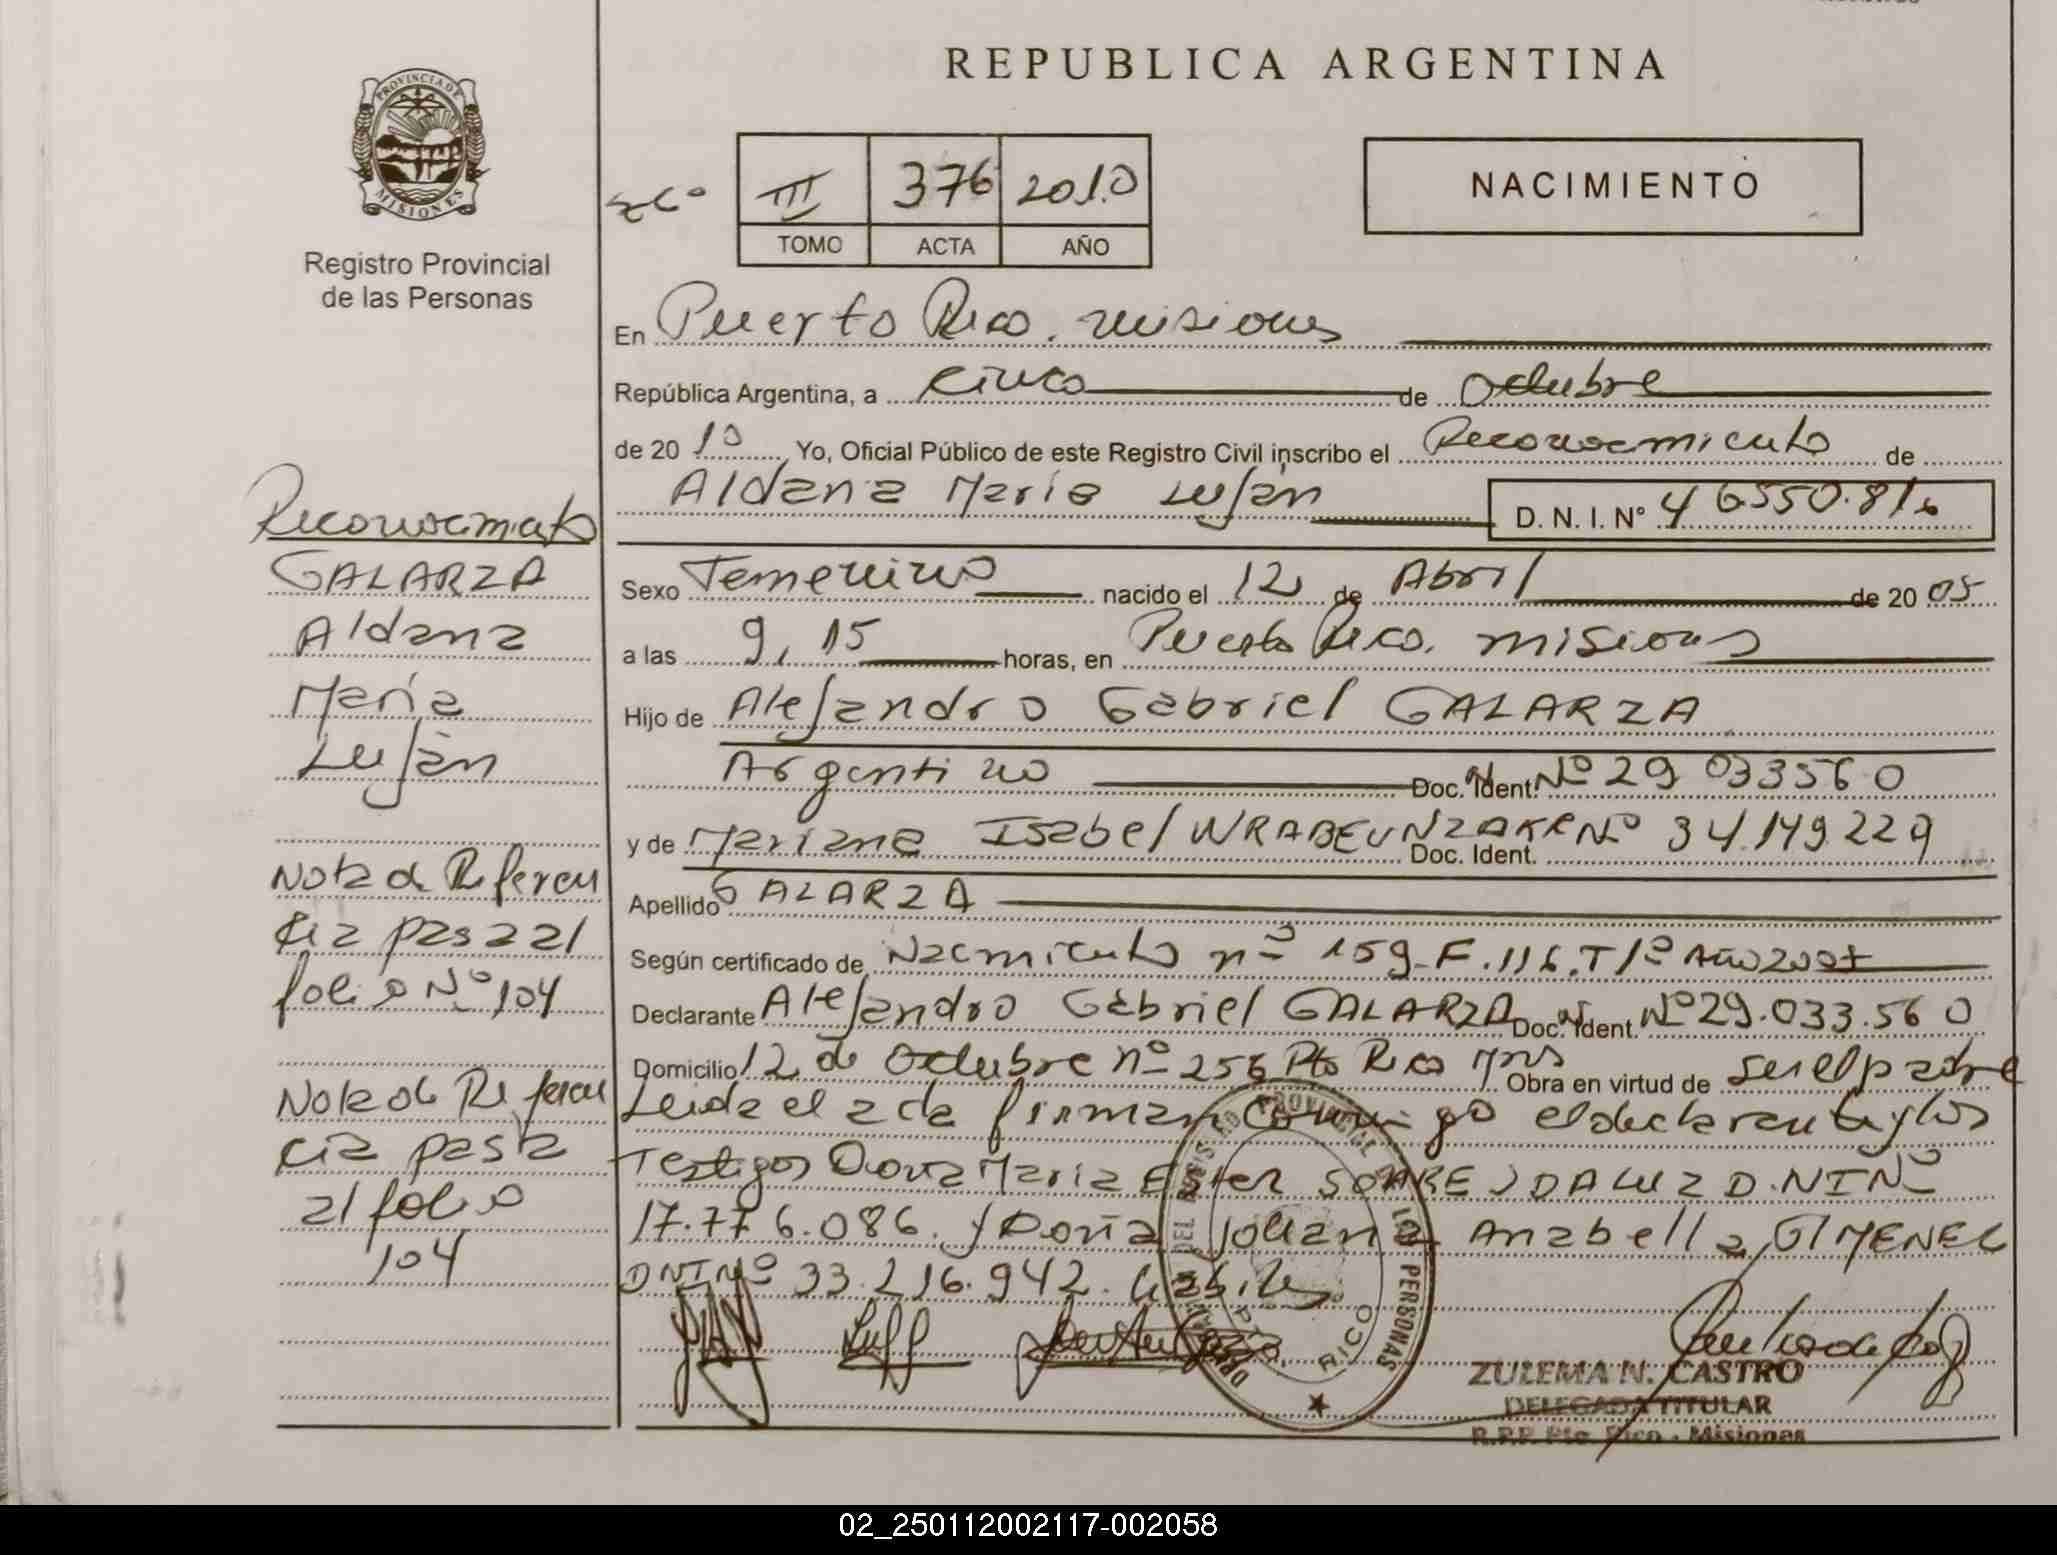 REPUBLICA ARGENTINA
PROVINCIA DE
MISIONES
Registro Provincial
de las Personas
III 376 2010
TOMO ACTA AÑO
NACIMIENTO
En Puerto Rico. misiones
República Argentina, a cinco de Octubre
de 2010 Yo, Oficial Público de este Registro Civil inscribo el Reconocimiento de
Aldana María Luján D. N. I. Nº 46550.816
Sexo Femenino nacido el 12 de Abril de 2005
a las 9,15 horas, en Puerto Rico. misiones
Hijo de Alejandro Gabriel GALARZA
Argentino Doc. Ident. Nº 29 033560
y de Mariana Isabel Doc. Ident. Nº 34.149.229
Apellido GALARZA
Según certificado de Nacimiento nº 159-F.116.T/º Año
Declarante Alejandro Gabriel GALARZA Doc. Ident. Nº 29.033.560
Domicilio 12 de Octubre nº 256 Pto Rico Mns Obra en virtud de ser el padre
Leida el acta firman conmigo el declarante y los
Testigos Doña Maria Ester SOARES DA LUZ D.NI Nº
17.776.086. y Doña Johana Anabella GIMENEZ
DNI Nº 33.216.942.
Reconocimiento
GALARZA
Aldana
María
Luján
Nota de Referen
cia pasa al
folio Nº 104
Nota de Referen
cia pasa
al folio
104
ZULEMA N. CASTRO
DELEGADA TITULAR
R.P.P. Pto. Rico - Misiones
02_250112002117-002058